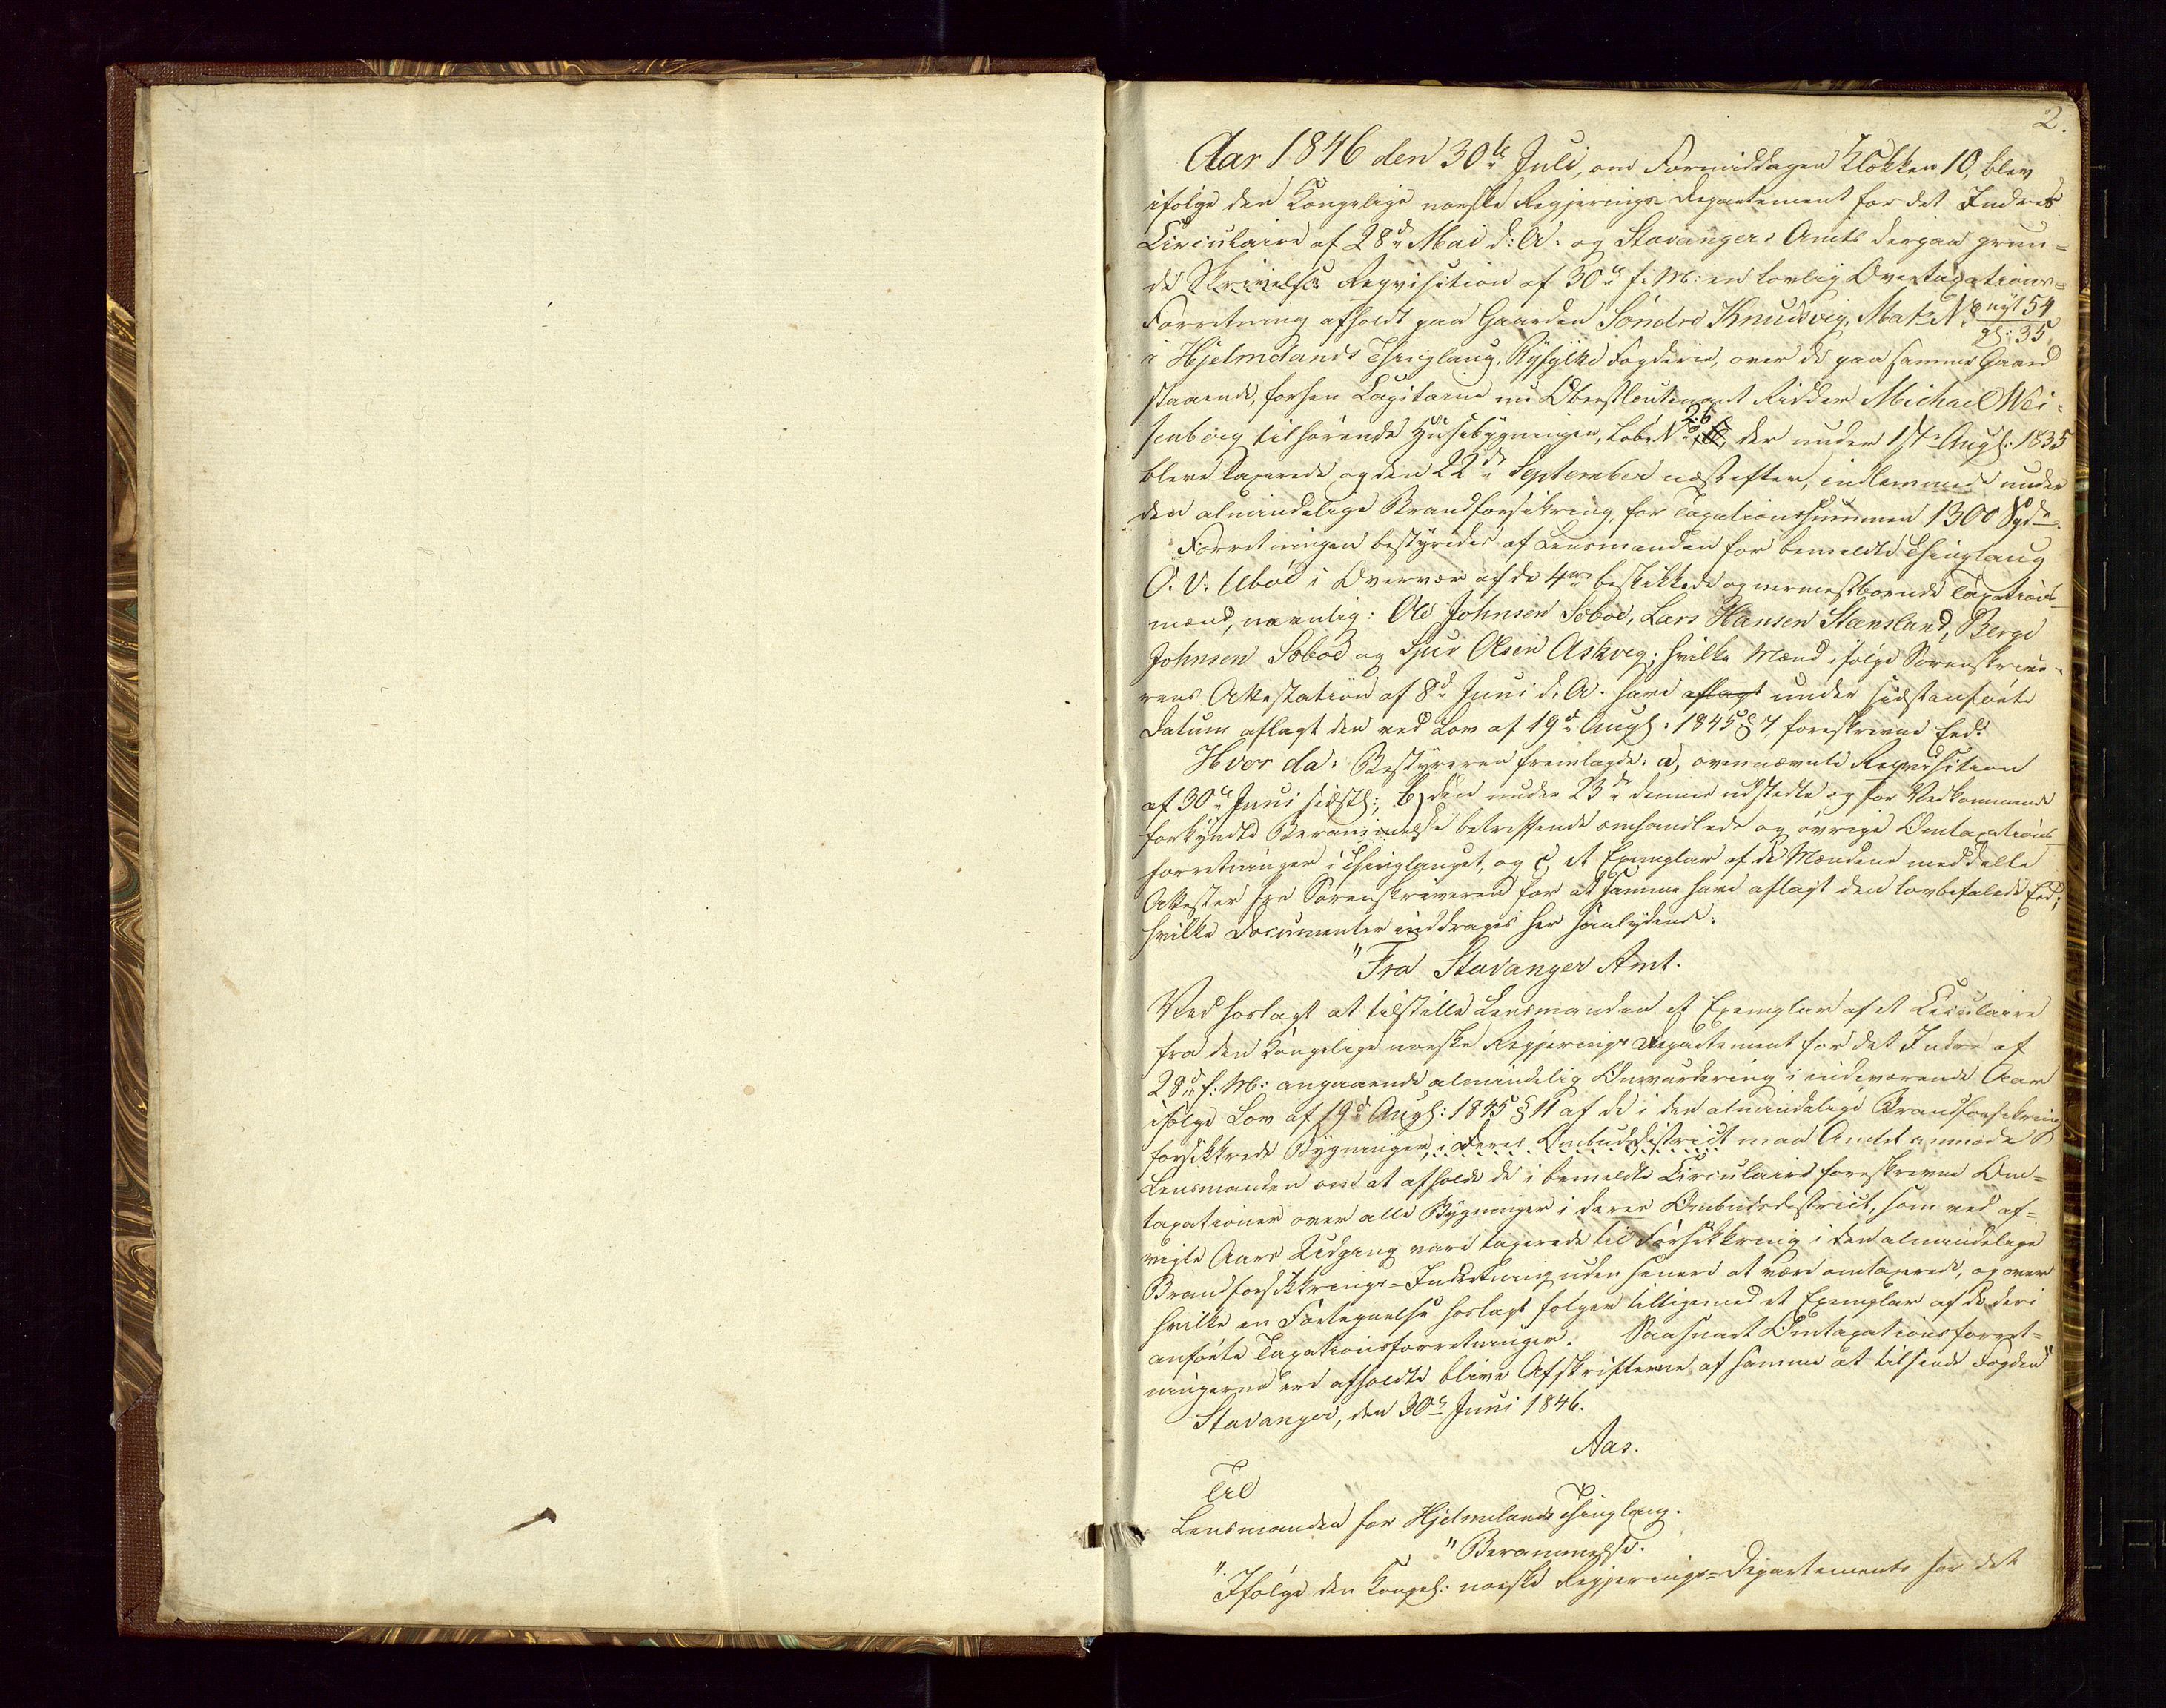 2.
Aar 1846 den 30te Juli, om Formiddagen Klokken 10, blev
ifølge den Kongelige norske Regjerings Departement for det Indres
Circulaire af 28de Mai d: A: og Stavanger Amts derpaa grun=
de Skrivelse Reqvisition af 30te f: M: en lovlig Overtaxations=
Forretning afholdt paa Gaarden Søndre Knudsvig, Matr. No nyt 54
gl: 35,
i Hjelmelands Thinglaug, Ryfylke Fogderie, over de paa samme Gaard
staaende, forhen Capitaine nu Oberstleutenant Ridder Michael Wei-
senberg tilhørende Huusebygninger, Løbe No 26, der under 17de Augs: 1835
bleve taxerede og den 22de September næstefter, indlemmede under
den almindelige Brandforsikring, for Taxationssummen 1300 Spd.
Forretningen bestyredes af Lensmanden for bemeldte Thinglaug
O. V. Ubøe i Overvær af de 4re beskikkede og nærmestboende Taxations-
mænd, navnlig: Ole Johnsen Sæbøe, Lars Hansen Steensland, Berge
Johnsen Sæbøe og Sjur Olsen Askvig; hvilke Mænd ifølge Sorenskrive-
rens Attestation af 8de Juni d. A. have aflagt under sidstanførte
Datum aflagt den ved Lov af 19de Augs: 1845 § 7, foreskrevne Eed.
Hvor da: Bestyreren fremlagde: a, ovennævnte Reqvisition
af 30te Juni sidstl:, b, den under 23de dennes udstedte og for Vedkommende
forkyndte Berammelse betreffende omhandlede og øvrige Omtaxations-
forretninger i Thinglauget, og c, et Exemplar af de Mændene meddelte
Attester fra Sorenskriveren for at samme have aflagt den lovbefalede Eed;
hvilke Documenter inddrages her saalydende:
"Fra Stavanger Amt.
Ved hoslagt at tilstille Lensmanden et Exemplar af et Circulaire
fra den Kongelige norske Regjerings Departement for det Indre af
28de f: M: angaaende almindelig Omvurdering i indeværende Aar
ifølge Lov af 19de Augs: 1845 § 11 af de i den almindelige Brandforsikring
forsikkrede Bygninger, i deres Ombudsdistrict maa Amtet anmode
Lensmanden om at afholde de i bemeldte Circulaire foreskrevne Om=
taxationer over alle Bygninger i deres Ombudsdistrict, som ved af=
vigte Aars Udgang vare taxerede til Forsikkring i den almindelige
Brandforsikkrings=Indretning uden senere at være omtaxerede, og over
hvilke en Fortegnelse hoslagt følger tilligemed et Exemplar af de deri
anførte Taxationsforretninger. Saasnart Omtaxationsforret=
ningerne ere afholdte blive Afskrifterne af samme at tilsende Fogden"
Stavanger, den 30te Juni 1846.
Aas.
Til
Lensmanden for Hjelmelands Thinglaug.
"Berammelse.
"Ifølge den Kongel: norske Regjerings=Departements for det